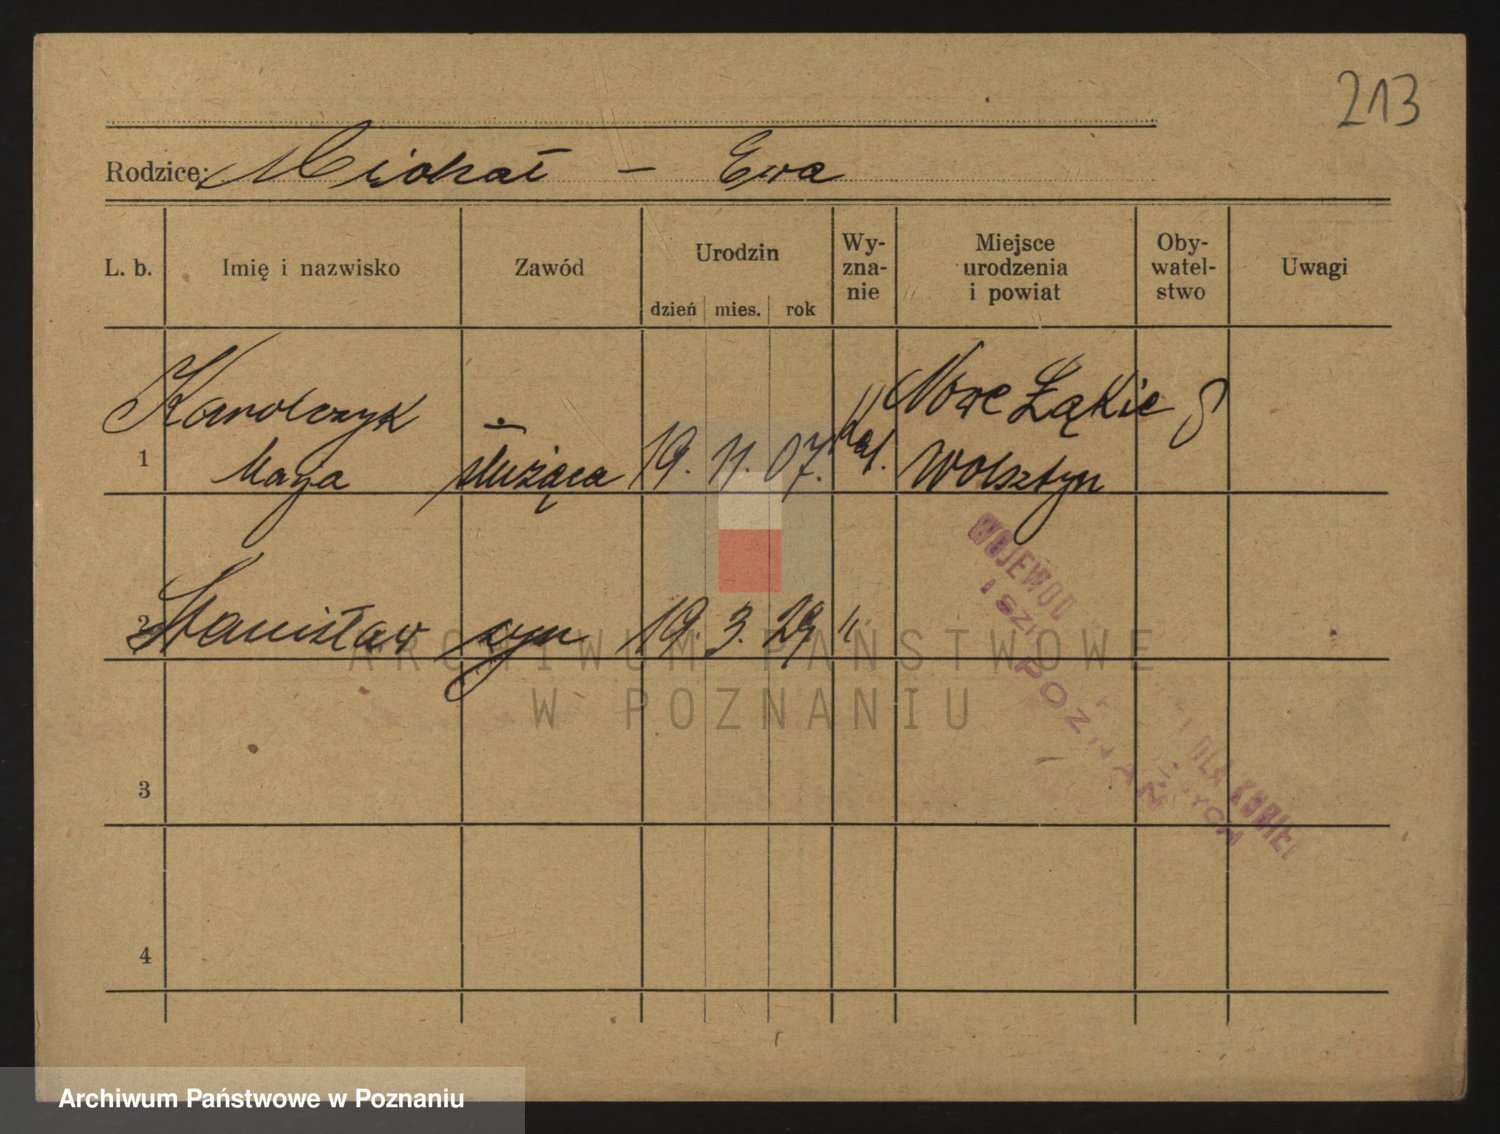 213
Rodzice: Michał – Ewa
L. b.
Imię i nazwisko
Zawód
Urodzin
dzień mies. rok
Wy-
zna-
nie
Miejsce
urodzenia
i powiat
Oby-
watel-
stwo
Uwagi
Karolczyk Nowe Łąkie
1 służąca 19. 11. 07. kat. Wolsztyn
2 Stanisław syn 19. 3. 29 "
3
4
WOJEWÓD
I SZ
POZNAŃ
DLA KOBIET
YCH
ARCHIWUM PAŃSTWOWE
W POZNANIU
Archiwum Państwowe w Poznaniu